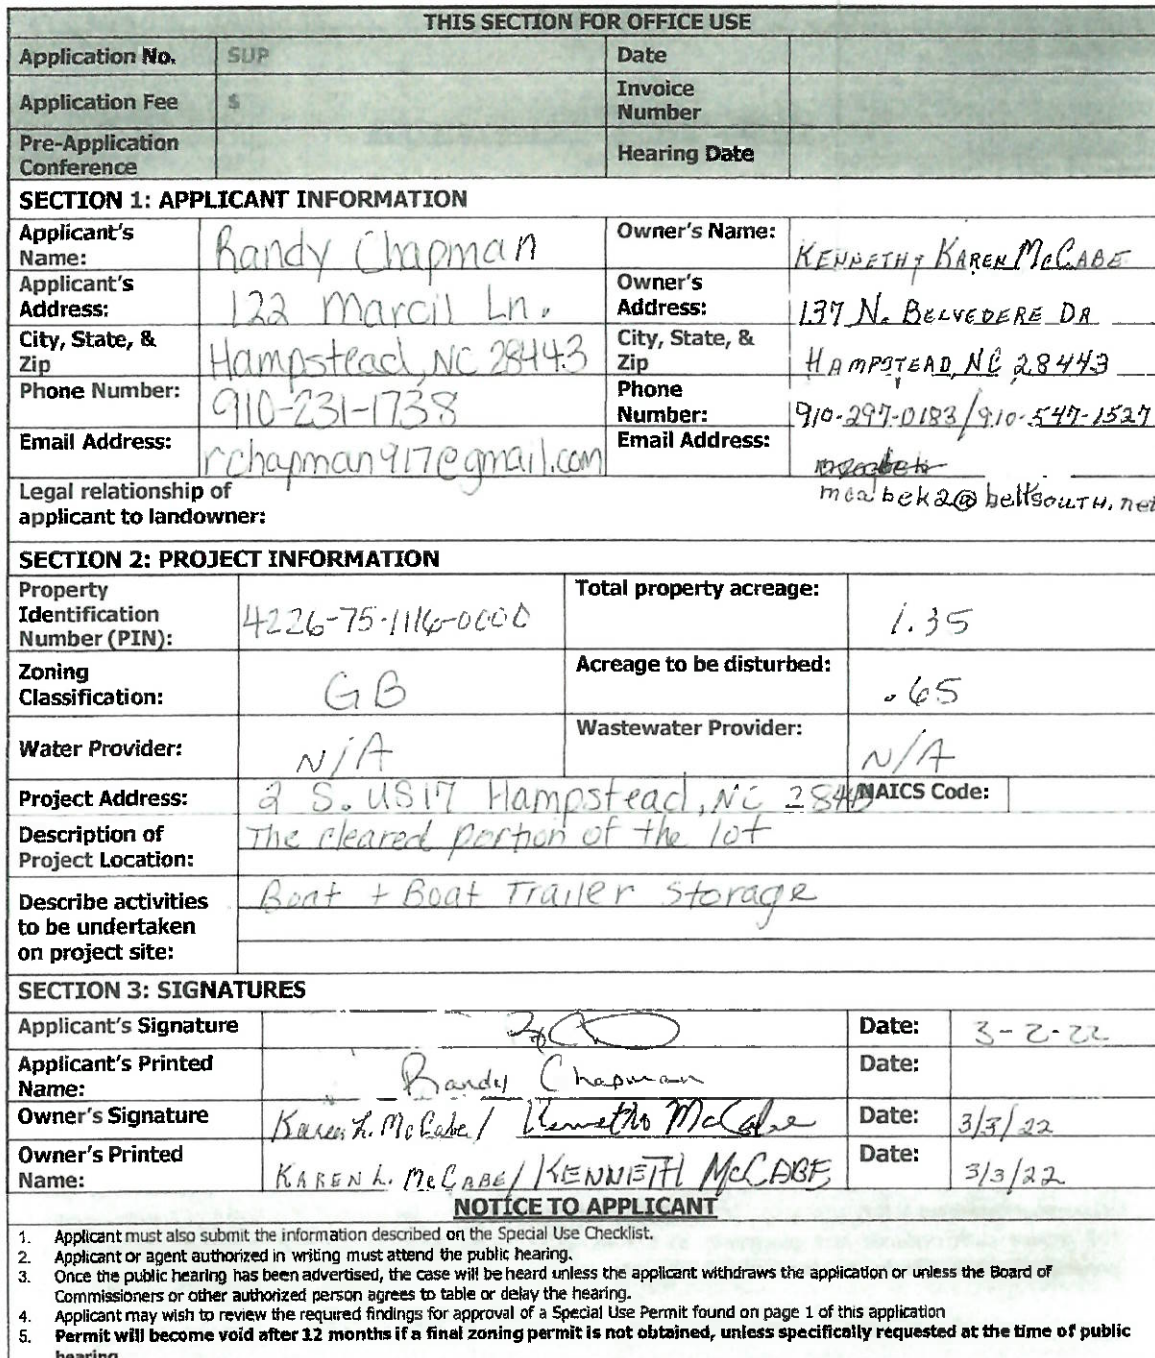 THIS SECTION FOR OFFICE USE
Application No. SUP Date
Application Fee $ Invoice Number
Pre-Application Conference Hearing Date
SECTION 1: APPLICANT INFORMATION
Applicant's Name: Randy Chapman Owner's Name: KENNETH + KAREN McCABE
Applicant's Address: 122 Marcil Ln. Owner's Address: 137 N. BELVEDERE DR
City, State, & Zip Hampstead, NC 28443 City, State, & Zip HAMPSTEAD, NC 28443
Phone Number: 910-231-1738 Phone Number: 910-297-0183/910-547-1527
Email Address: rchapman917@gmail.com Email Address:
mcabek2@bellsouth.net
Legal relationship of
applicant to landowner:
SECTION 2: PROJECT INFORMATION
Property Identification Number (PIN): 4226-75-1116-0000 Total property acreage: 1.35
Zoning Classification: GB Acreage to be disturbed: .65
Water Provider: N/A Wastewater Provider: N/A
Project Address: 2 S. US17 Hampstead, NC NAICS Code:
Description of Project Location: The cleared portion of the lot
Describe activities to be undertaken on project site: Boat + Boat Trailer Storage
SECTION 3: SIGNATURES
Applicant's Signature Date: 3-2-22
Applicant's Printed Name: Randy Chapman Date:
Owner's Signature Karen L. McCabe/ Kenneth McCabe Date: 3/3/22
Owner's Printed Name: KAREN L. McCABE/KENNETH McCABE Date: 3/3/22
NOTICE TO APPLICANT
1. Applicant must also submit the information described on the Special Use Checklist.
2. Applicant or agent authorized in writing must attend the public hearing.
3. Once the public hearing has been advertised, the case will be heard unless the applicant withdraws the application or unless the Board of
Commissioners or other authorized person agrees to table or delay the hearing.
4. Applicant may wish to review the required findings for approval of a Special Use Permit found on page 1 of this application
5. Permit will become void after 12 months if a final zoning permit is not obtained, unless specifically requested at the time of public
hearing